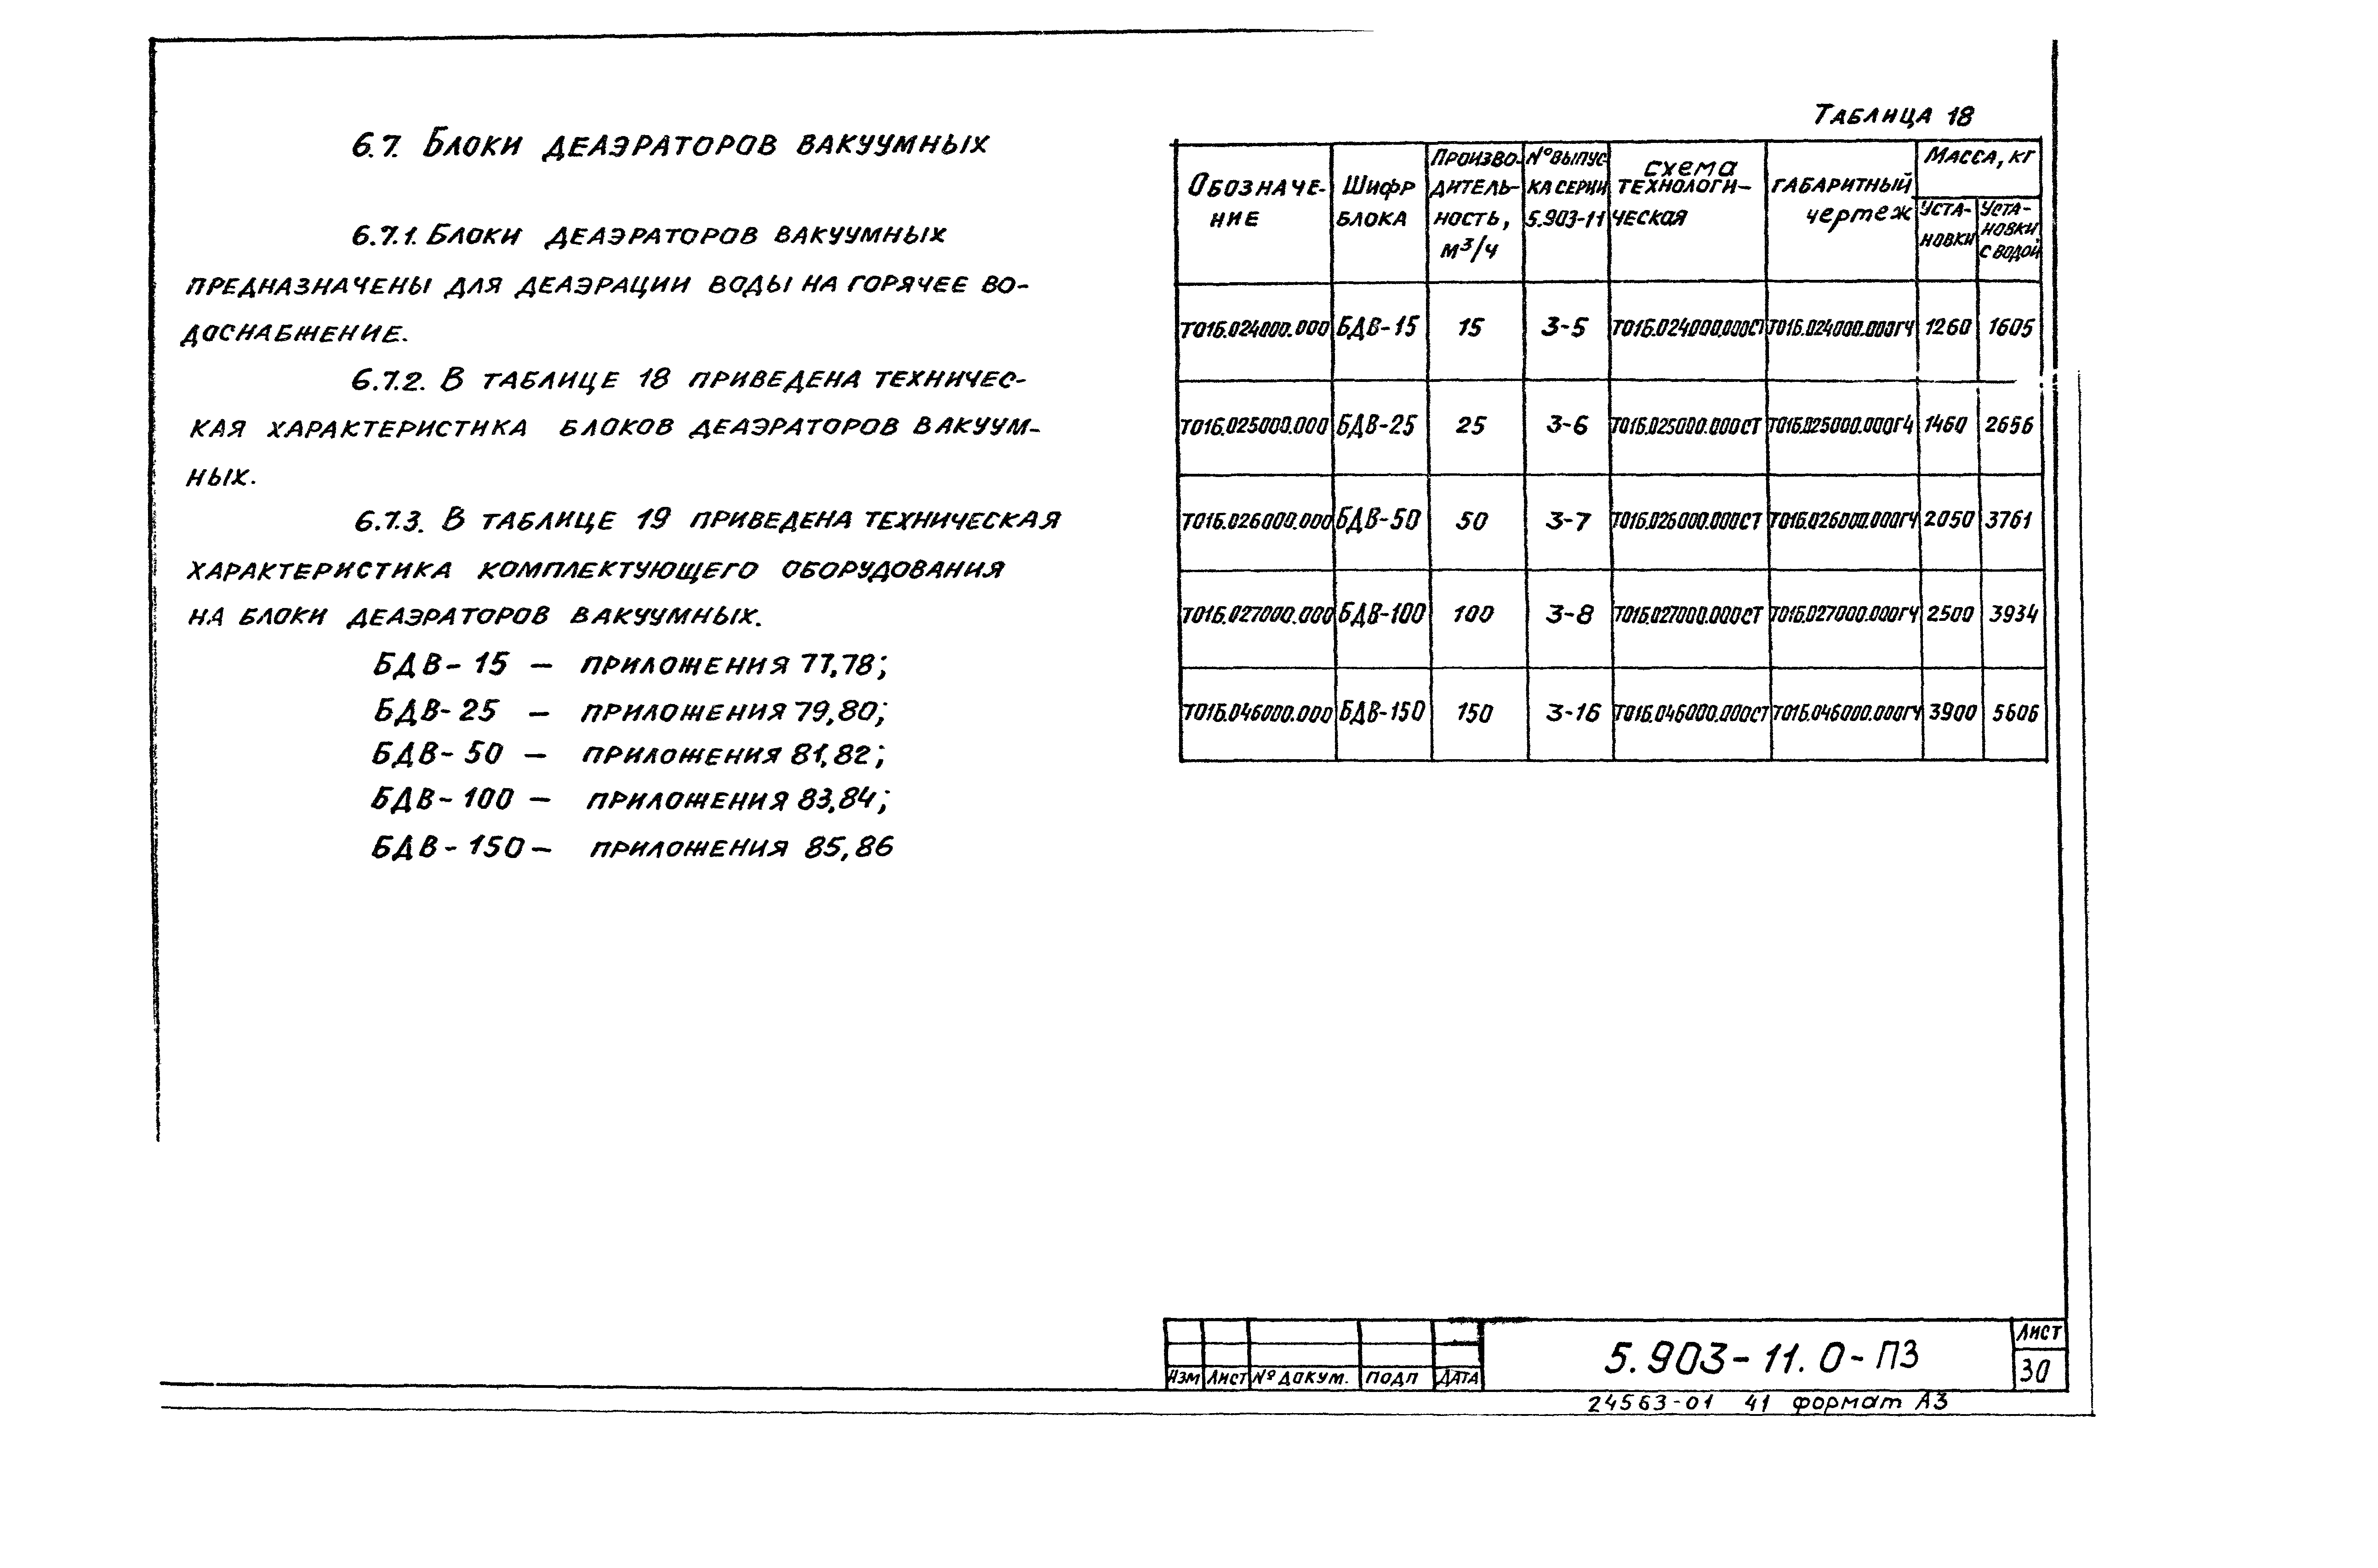 6.7. Блоки деаэраторов вакуумных
6.7.1. Блоки деаэраторов вакуумных
предназначены для деаэрации воды на горячее во-
доснабжение.
6.7.2. В таблице 18 приведена техничес-
кая характеристика блоков деаэраторов вакуум-
ных.
6.7.3. В таблице 19 приведена техническая
характеристика комплектующего оборудования
на блоки деаэраторов вакуумных.
БДВ-15 – приложения 77,78;
БДВ-25 – приложения 79,80;
БДВ-50 – приложения 81,82;
БДВ-100 – приложения 83,84;
БДВ-150 – приложения 85,86
Таблица 18
Обозначе-
ние
Шифр
блока
Произво-
дитель-
ность,
м³/ч
№ выпус
ка серии
5.903-11
схема
технологи-
ческая
габаритный
чертеж
Масса, кг
Уста-
новки
Уста-
новки
с водой
Т01Б.024000.000 БДВ-15 15 3-5 Т01Б.024000.000СТ Т01Б.024000.000ГЧ 1260 1605
Т01Б.025000.000 БДВ-25 25 3-6 Т01Б.025000.000СТ Т01Б.025000.000ГЧ 1460 2656
Т01Б.026000.000 БДВ-50 50 3-7 Т01Б.026000.000СТ Т01Б.026000.000ГЧ 2050 3761
Т01Б.027000.000 БДВ-100 100 3-8 Т01Б.027000.000СТ Т01Б.027000.000ГЧ 2500 3934
Т01Б.046000.000 БДВ-150 150 3-16 Т01Б.046000.000СТ Т01Б.046000.000ГЧ 3900 5606
Изм Лист № докум. Подп Дата
5.903-11.0-ПЗ
Лист
30
24563-01 41 формат А3